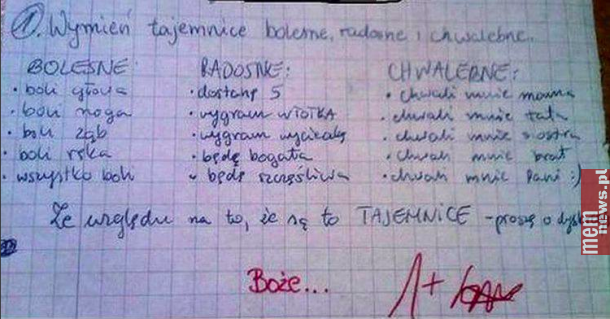 1. Wymień tajemnice bolesne, radosne i chwalebne.
BOLESNE: RADOSNE: CHWALEBNE:
• boli głowa • dostanę 5 • chwali mnie mama
• boli noga • wygram w totka • chwali mnie tata
• boli ząb • wygram wycieczkę • chwali mnie siostra
• boli ręka • będę bogata • chwali mnie brat
• wszystko boli • będę szczęśliwa • chwali mnie Pani :)
Ze względu na to, że są to TAJEMNICE - proszę o
Boże... 1+
mem news.pl